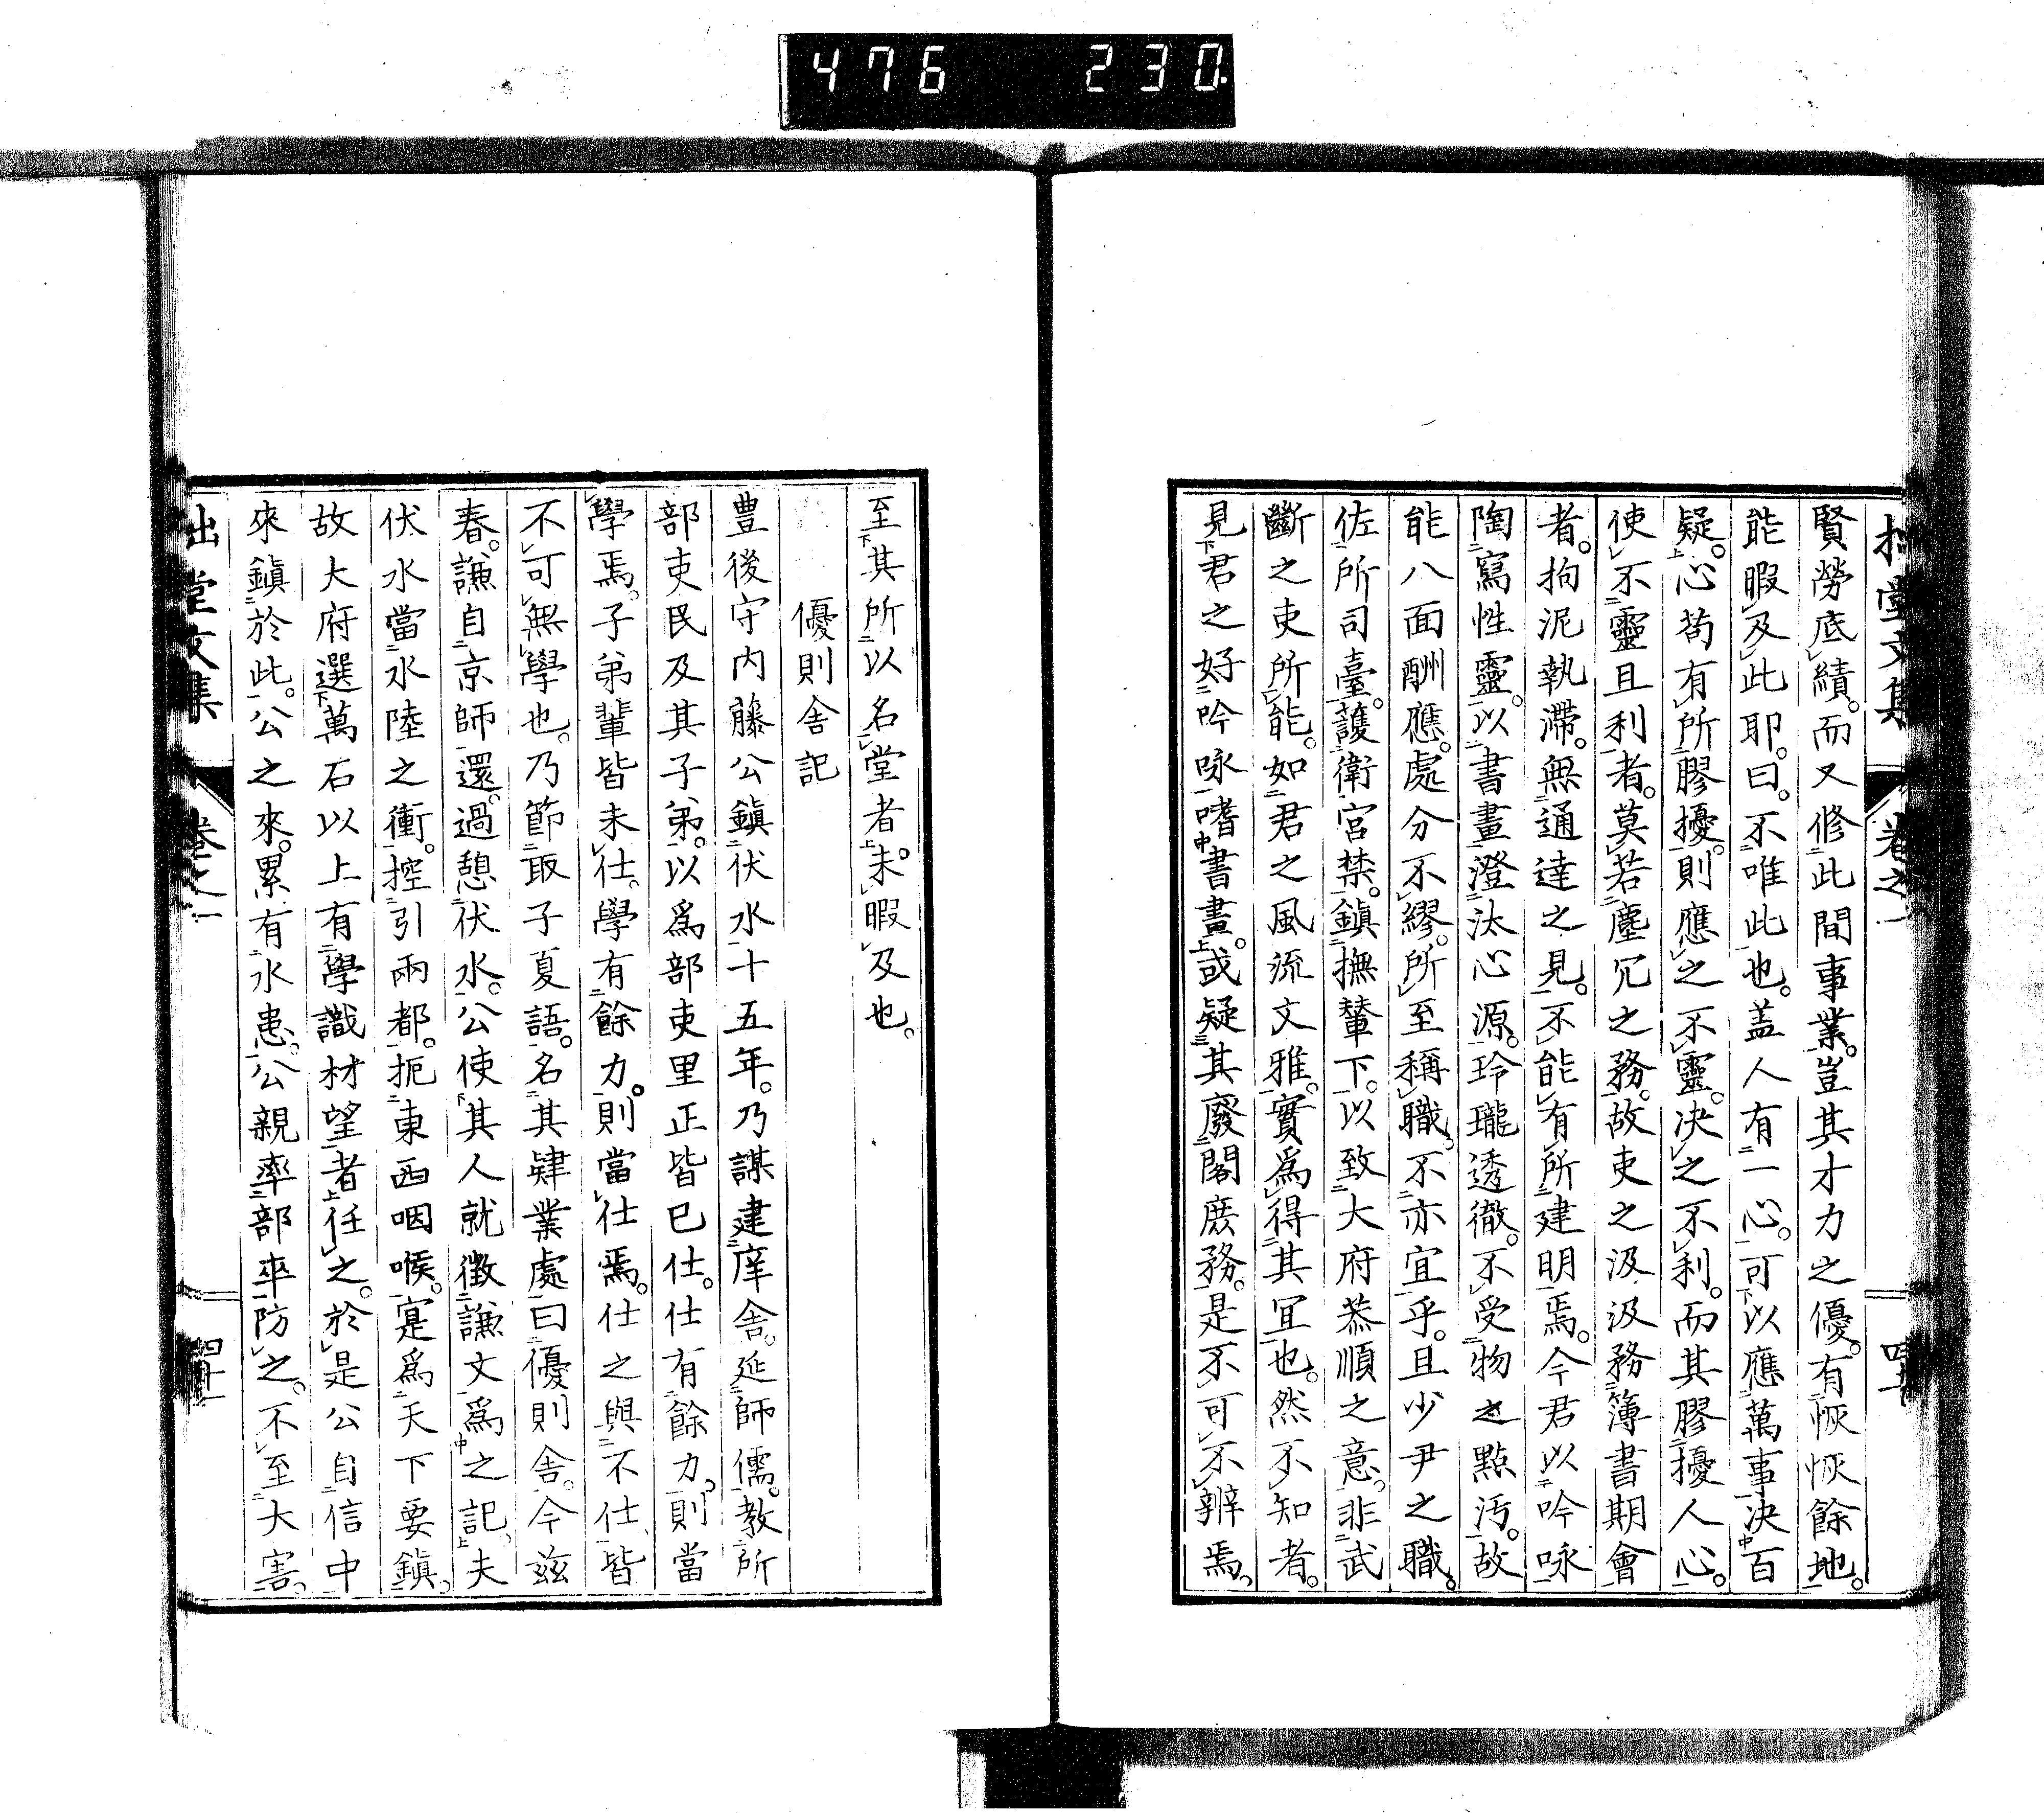 476 230
賢勞底績。而又修此間事業。豈其才力之優。有恢恢餘地。
能暇及此耶。曰。不唯此也。蓋人有一心。可以應萬事。決百
疑。心苟有所膠擾。則應之不靈。決之不利。而其膠擾人心。
使不靈且利者。莫若塵冗之務。故吏之汲汲務簿書期會
者。拘泥執滯。無通達之見。不能有所建明焉。今君以吟咏
陶寫性靈。以書畫澄汰心源。玲瓏透徹。不受物之點汚。故
能八面酬應。處分不繆。所至稱職。不亦宜乎。且少尹之職。
佐所司臺。護衛宮禁。鎭撫輦下。以致大府恭順之意。非武
斷之吏所能。如君之風流文雅。實爲得其宜也。然不知者。
見君之好吟咏嗜書畫。或疑其廢閣庶務。是不可不辨焉。
至其所以名堂者。未暇及也。
優則舍記
豊後守内藤公鎭伏水十五年。乃謀建庠舍。延師儒。教所
部吏民及其子弟。以爲部吏里正皆已仕。仕有餘力。則當
學焉。子弟輩皆未仕。學有餘力。則當仕焉。仕之與不仕、皆
不可無學也。乃節取子夏語。名其肄業處曰優則舍。今茲
春。謙自京師還。過憩伏水。公使其人就徵謙文爲之記。夫
伏水當水陸之衝。控引兩都。扼東西咽喉。寔爲天下要鎭。
故大府選萬石以上有學識材望者任之。於是公自信中
來鎭於此。公之來。累有水患。公親率部卒防之。不至大害。
拙堂文集 卷之